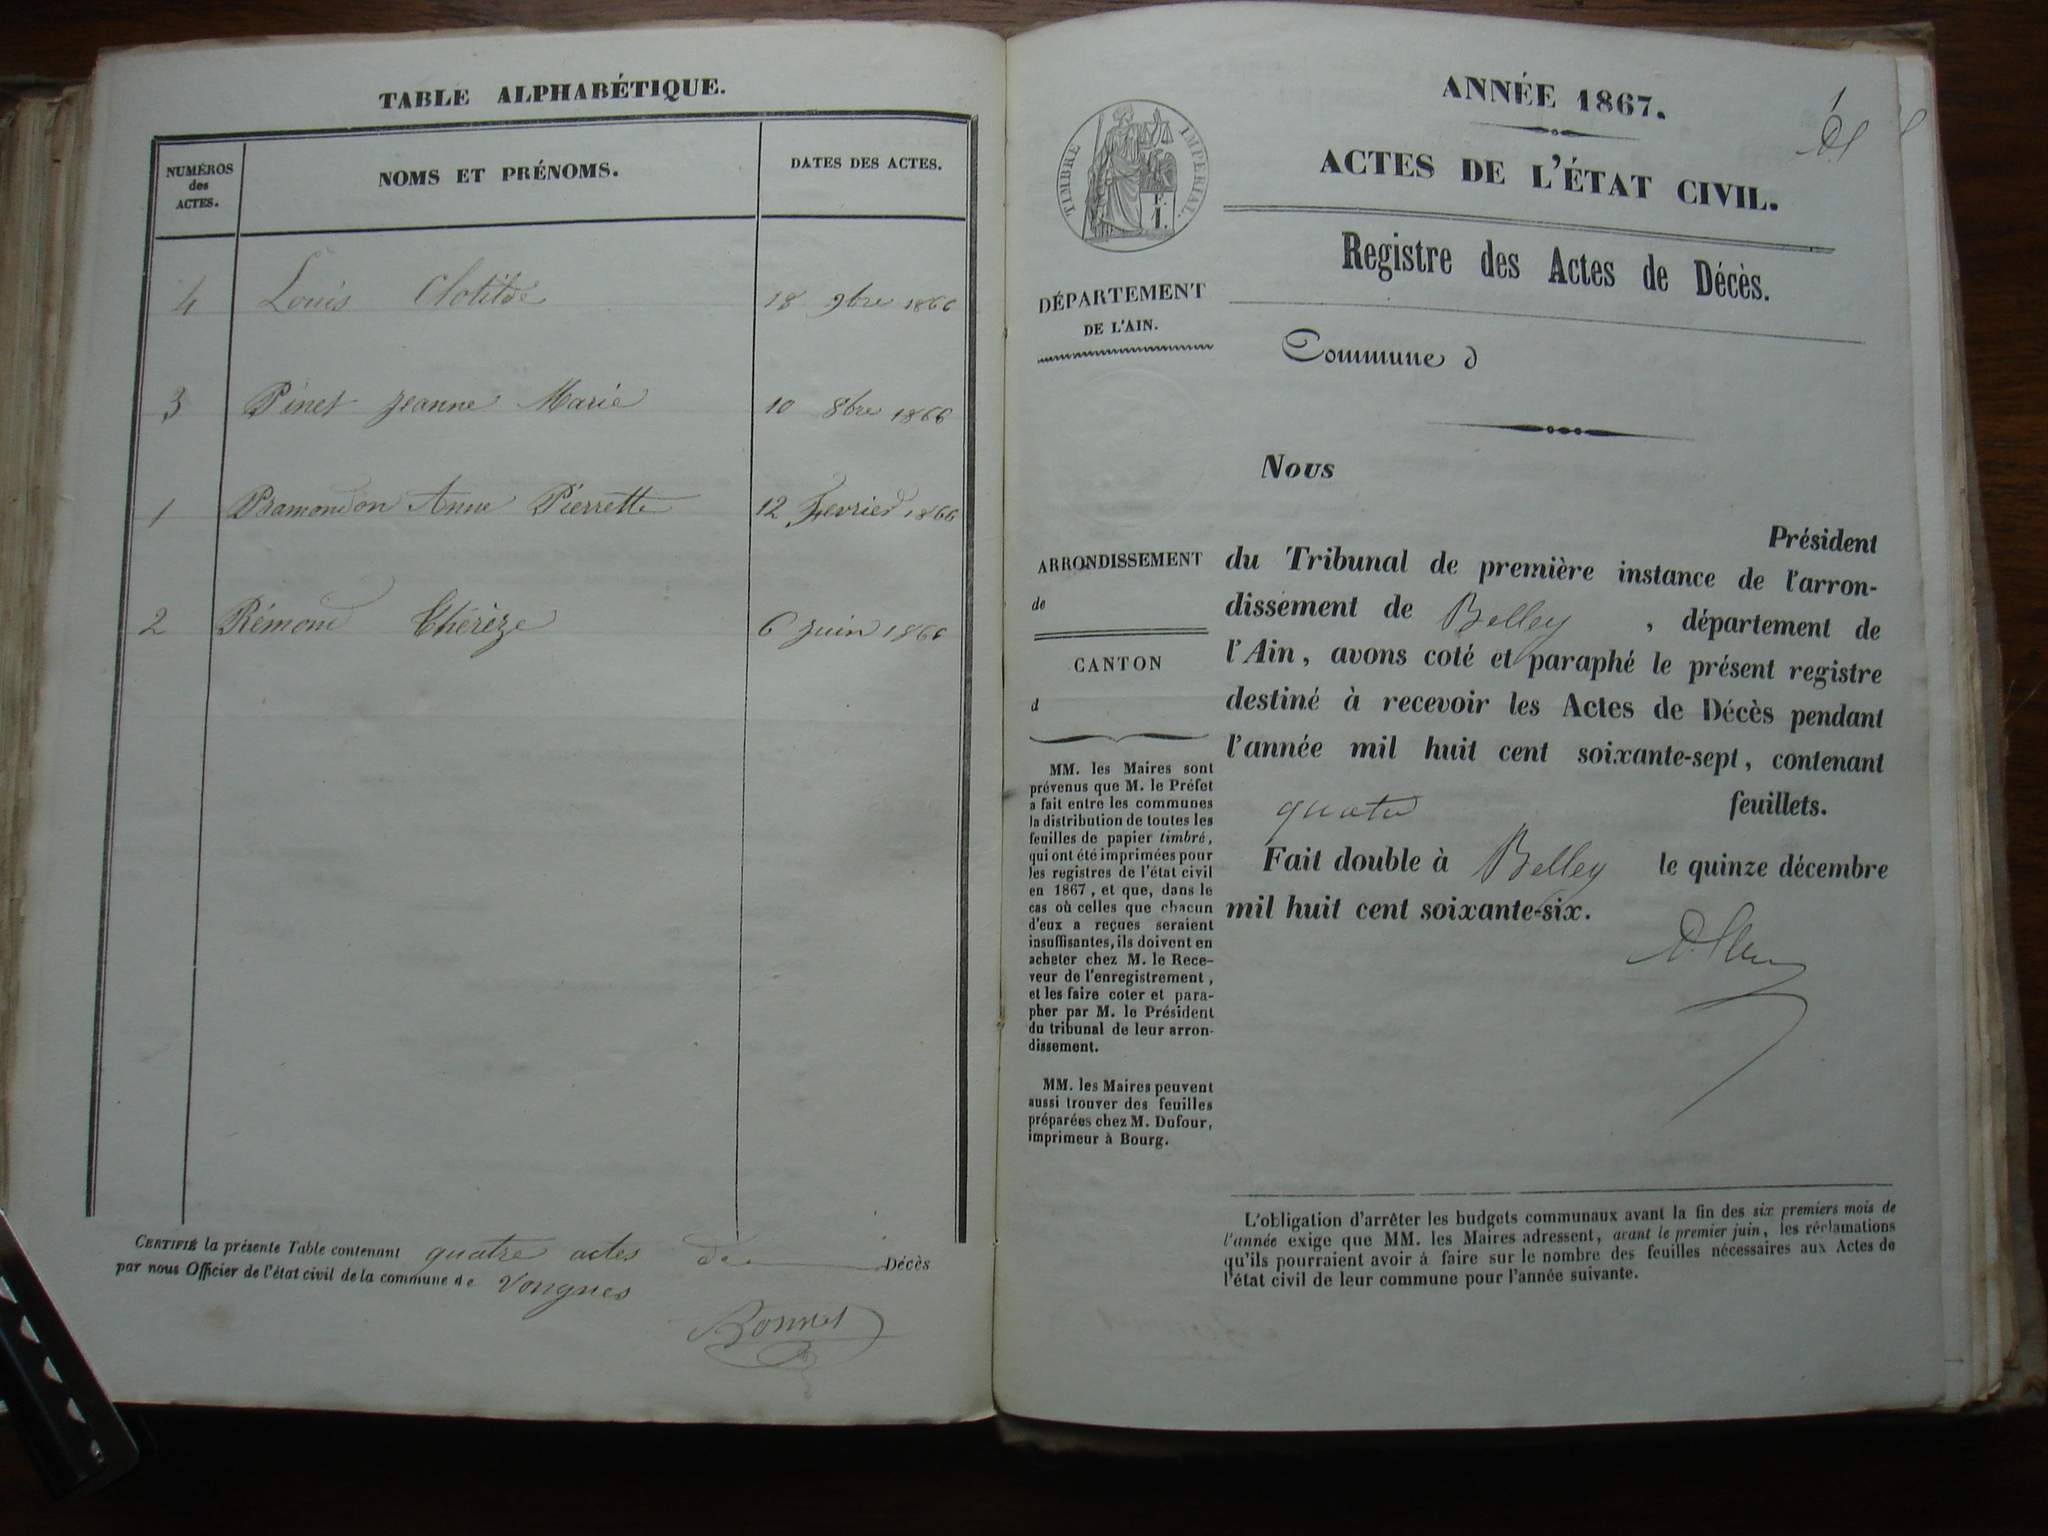 TABLE ALPHABÉTIQUE.
NUMÉROS des ACTES. NOMS ET PRÉNOMS. DATES DES ACTES.
4 Louis Clotilde 18 9bre 1866
3 Pinet Jeanne Marie 10 8bre 1866
1 Pramondon Anne Pierrette 12 Fevrier 1866
2 Rémond Thérèze 6 Juin 1866
CERTIFIÉ la présente Table contenant quatre actes de Décès
par nous Officier de l'état civil de la commune de Vongnes
Bonnet
1
ANNÉE 1867.
ACTES DE L'ÉTAT CIVIL.
Registre des Actes de Décès.
TIMBRE IMPÉRIAL.
F.
1.
DÉPARTEMENT
DE L'AIN.
Commune d
Nous
Président
du Tribunal de première instance de l'arron-
dissement de Belley , département de
l'Ain, avons coté et paraphé le présent registre
destiné à recevoir les Actes de Décès pendant
l'année mil huit cent soixante-sept, contenant
quatre feuillets.
Fait double à Belley le quinze décembre
mil huit cent soixante-six.
ARRONDISSEMENT
de
CANTON
d
MM. les Maires sont
prévenus que M. le Préfet
a fait entre les communes
la distribution de toutes les
feuilles de papier timbré,
qui ont été imprimées pour
les registres de l'état civil
en 1867, et que, dans le
cas où celles que chacun
d'eux a reçues seraient
insuffisantes, ils doivent en
acheter chez M. le Rece-
veur de l'enregistrement,
et les faire coter et para-
pher par M. le Président
du tribunal de leur arron-
dissement.
MM. les Maires peuvent
aussi trouver des feuilles
préparées chez M. Dufour,
imprimeur à Bourg.
L'obligation d'arrêter les budgets communaux avant la fin des six premiers mois de
l'année exige que MM. les Maires adressent, avant le premier juin, les réclamations
qu'ils pourraient avoir à faire sur le nombre des feuilles nécessaires aux Actes de
l'état civil de leur commune pour l'année suivante.